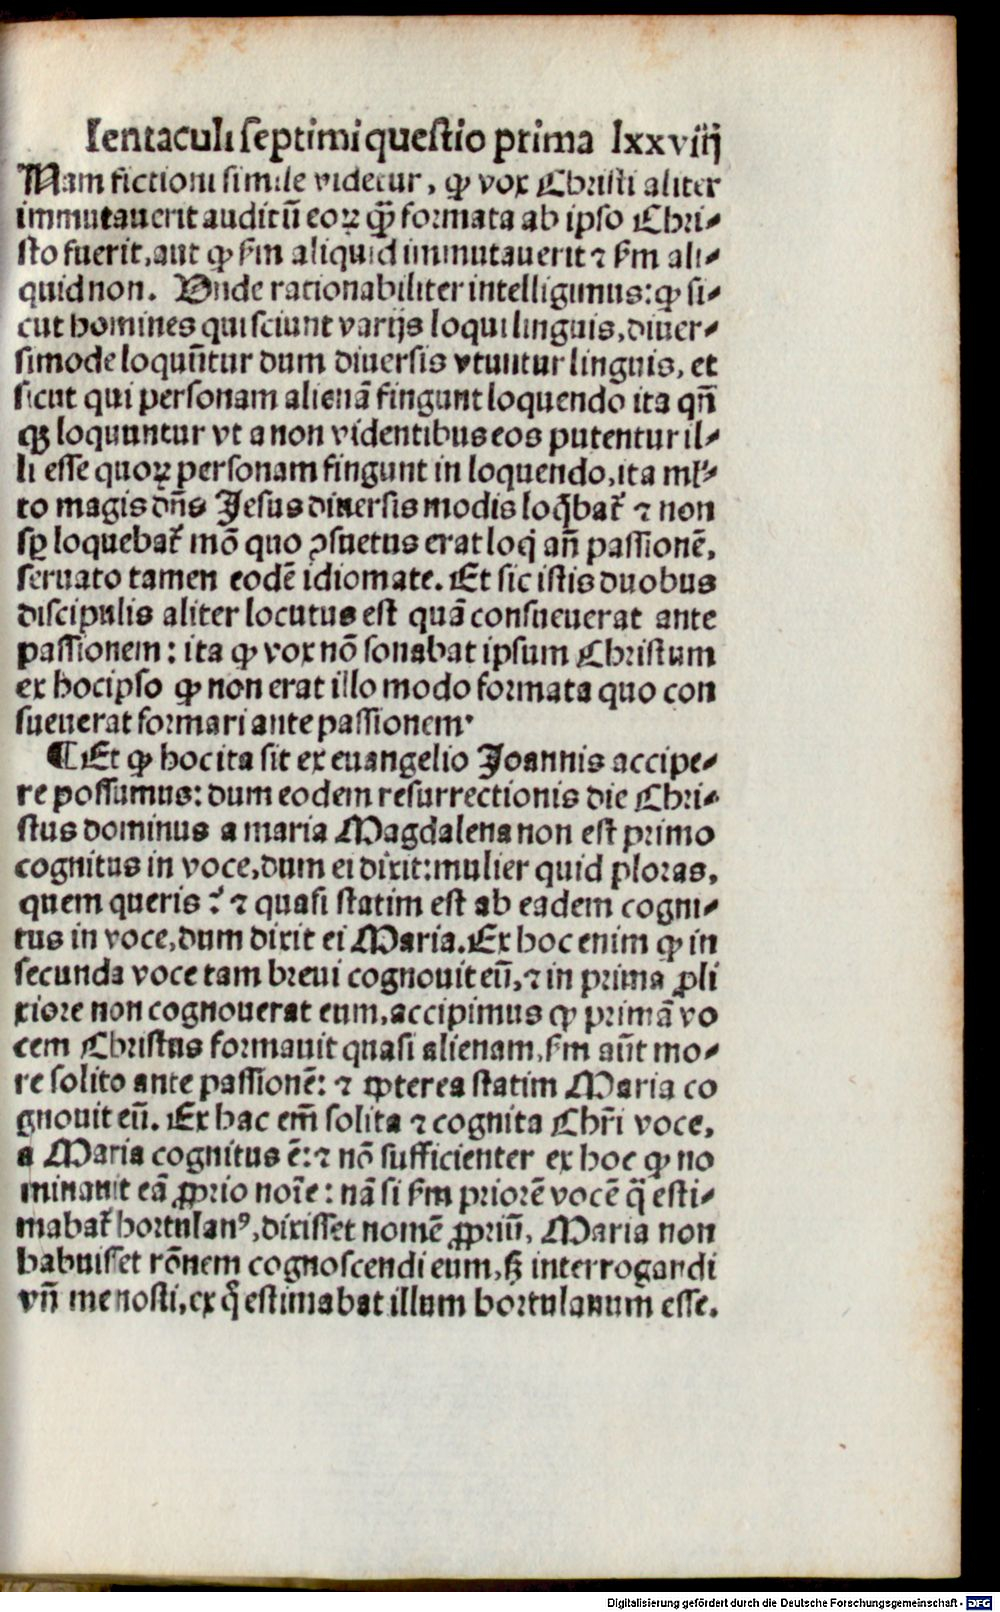 Ientaculi septimi questio prima lxxviij
Nam fictioni simile videtur, ꝙ vox Christi aliter
immutauerit auditū eoꝝ qꝫ̃ formata ab ipso Chri⸗
sto fuerit, aut ꝙ ẜm aliquid immutauerit ⁊ ẜm ali⸗
quid non. Vnde rationabiliter intelligimus: ꝙ si⸗
cut homines qui sciunt varijs loqui linguis, diuer⸗
simode loquūtur dum diuersis vtuntur linguis, et
sicut qui personam alienā fingunt loquendo ita qñ
qꝫ loquuntur vt a non videntibus eos putentur il⸗
li esse quoꝝ personam fingunt in loquendo, ita ml⸗
to magis dñs Jesus diuersis modis loq̄bat᷑ ⁊ non
sꝑ loquebat᷑ mō quo ꝯsuetus erat loq̇ añ passionē,
seruato tamen eodē idiomate. Et sic istis duobus
discipulis aliter locutus est quā consueuerat ante
passionem: ita ꝙ vox nō sonabat ipsum Christum
ex hocipso ꝙ non erat illo modo formata quo con
sueuerat formari ante passionem.
¶ Et ꝙ hoc ita sit ex euangelio Joannis accipe⸗
re possumus: dum eodem resurrectionis die Chri⸗
stus dominus a maria Magdalena non est primo
cognitus in voce, dum ei dixit: mulier quid ploras,
quem queris? ⁊ quasi statim est ab eadem cogni⸗
tus in voce, dum dixit ei Maria. Ex hoc enim ꝙ in
secunda voce tam breui cognouit eū, ⁊ in prima ꝓli
xiore non cognouerat eum, accipimus ꝙ primā vo
cem Christus formauit quasi alienam, ẜm aūt mo⸗
re solito ante passionē: ⁊ ꝓpterea statim Maria co
gnouit eū. Ex hac em̄ solita ⁊ cognita Chr̄i voce,
a Maria cognitus ē: ⁊ nō sufficienter ex hoc ꝙ no
minauit eā ꝓprio noīe: nā si ẜm priorē vocē q̄ esti⸗
mabat᷑ hortulanꝰ, dixisset nomē ꝓpriū, Maria non
habuisset rōnem cognoscendi eum, sꝫ interrogandi
vñ me nosti, ex q̊ estimabat illum hortulanum esse.
Digitalisierung gefördert durch die Deutsche Forschungsgemeinschaft - DFG